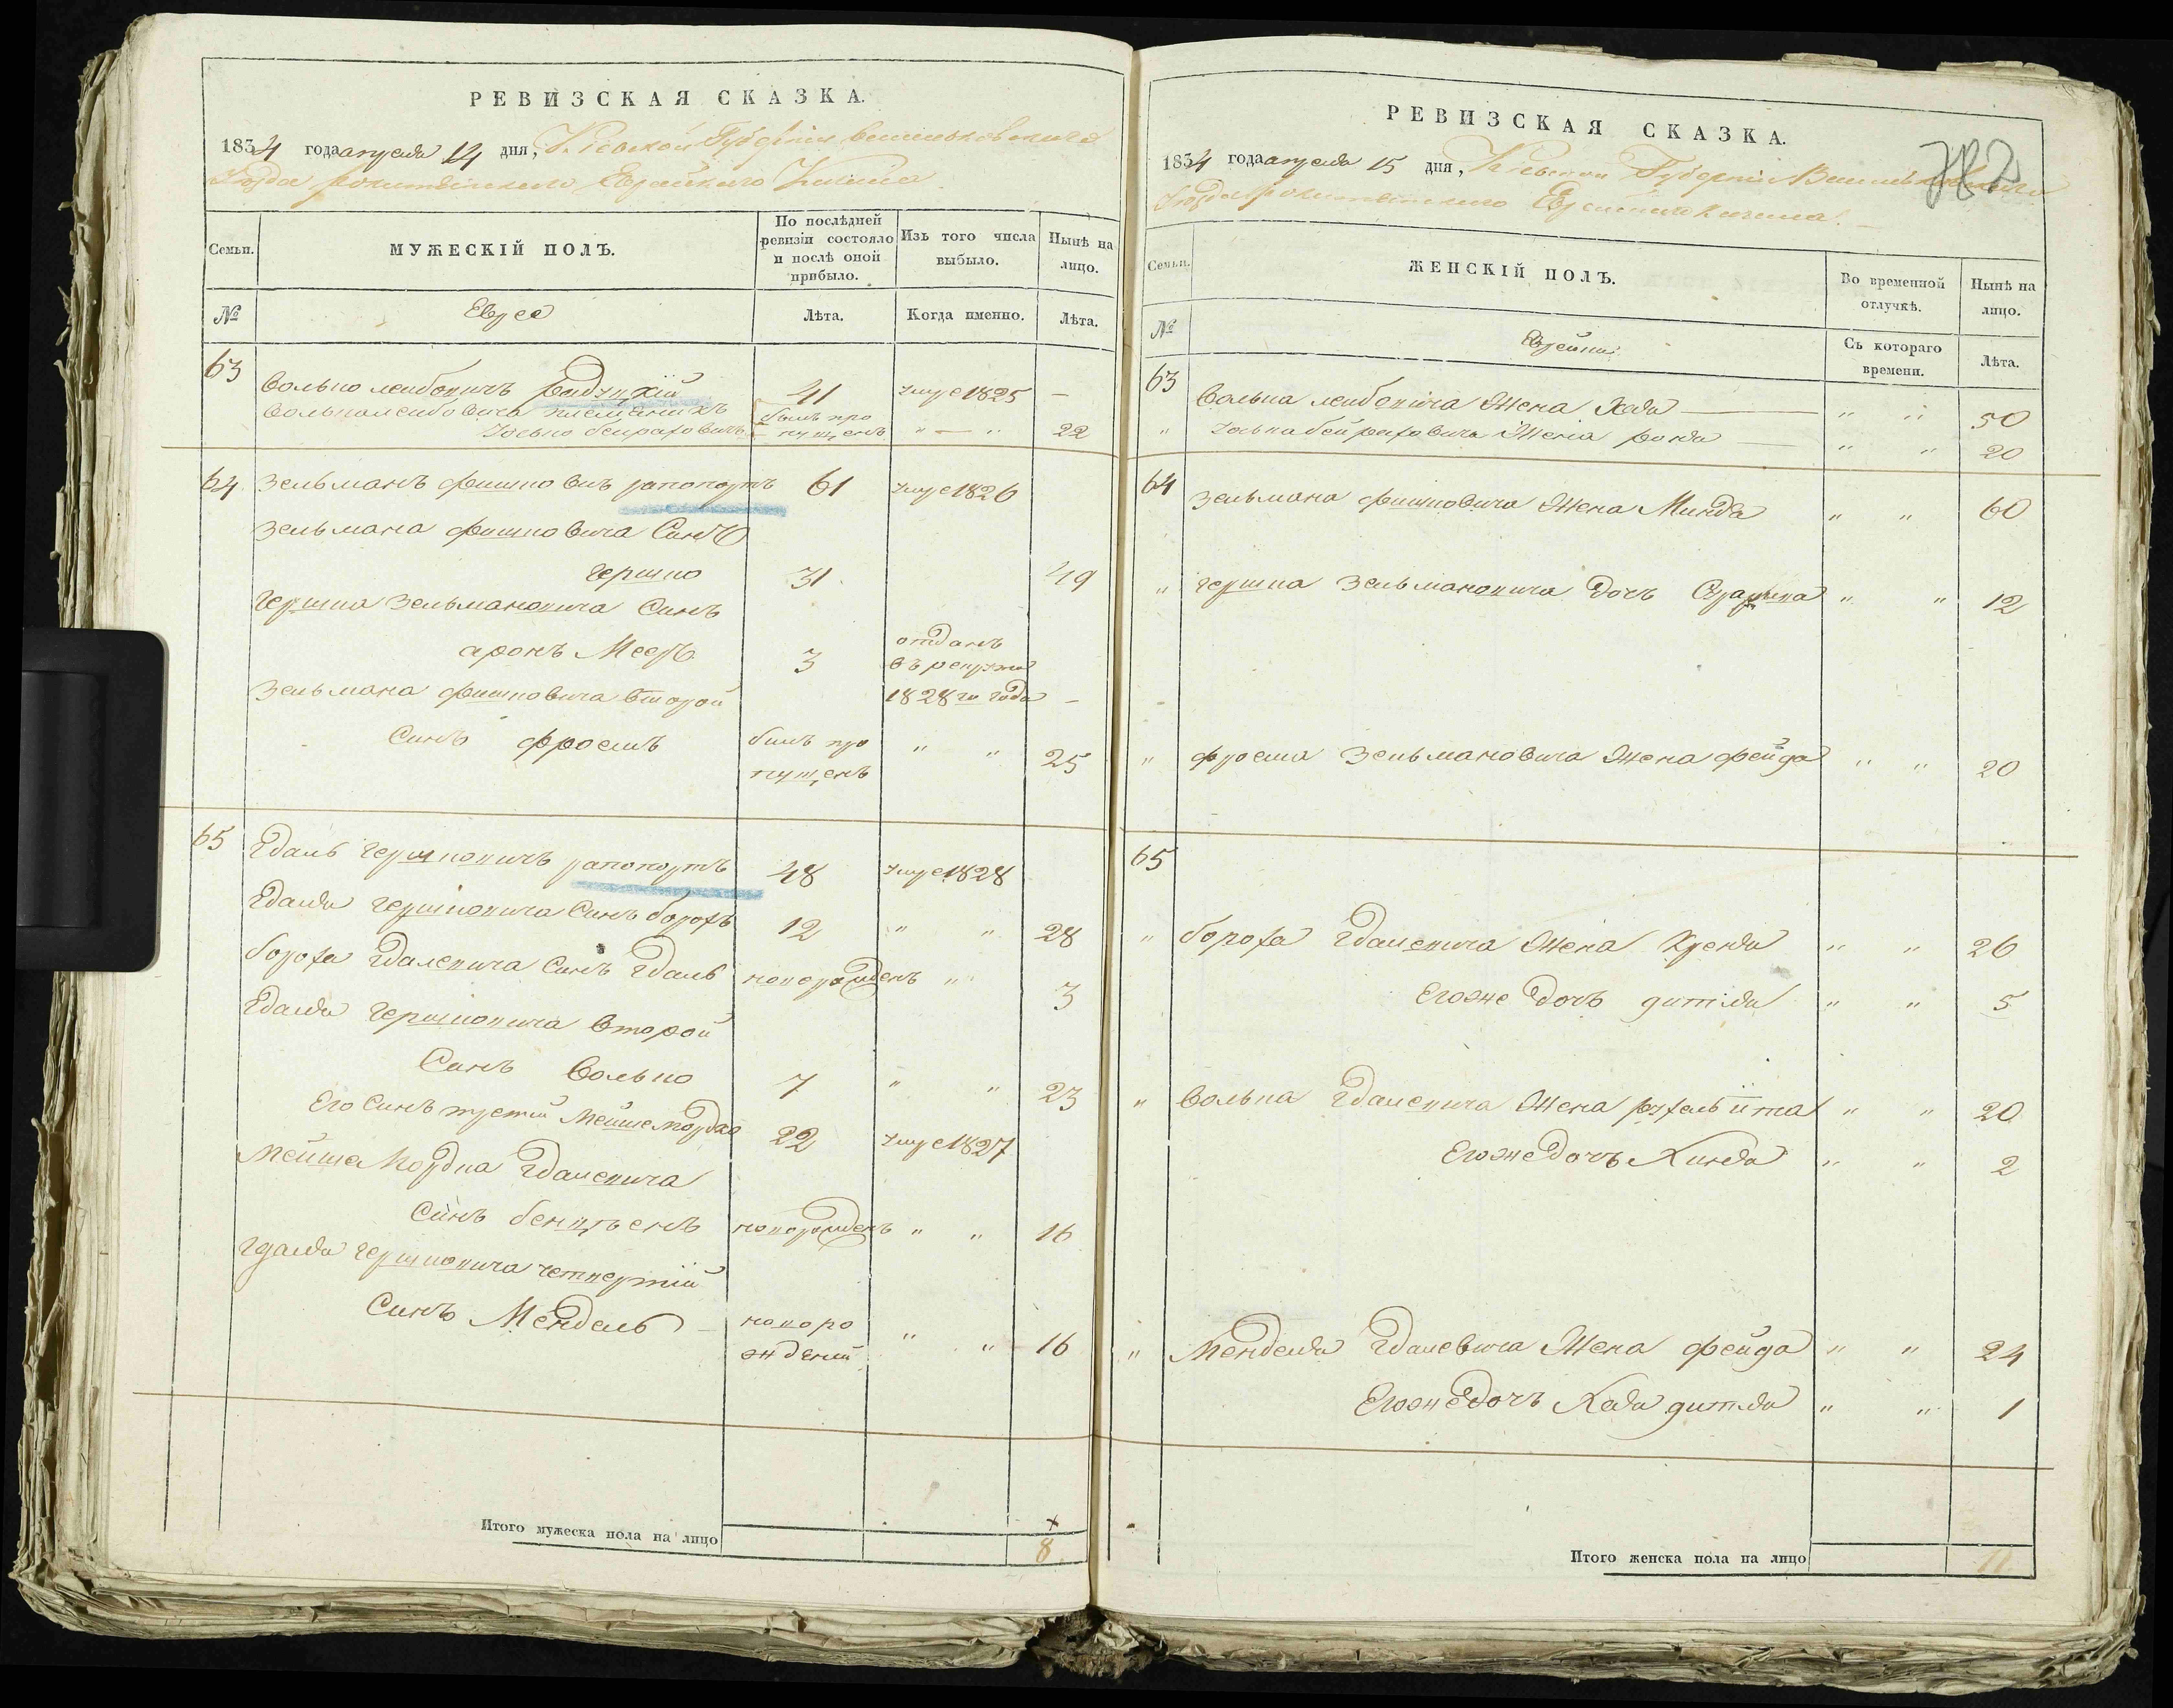 РЕВИЗСКАЯ СКАЗКА.
1834 года апреля 14 дня, Кіевской Губерніи Васильковского
Уезда рокитянского Еврейского Кагала
Семьи.
МУЖЕСКІЙ ПОЛЪ.
По послѣдней ревизіи состояло и послѣ оной прибыло.
Изъ того числа выбыло.
Нынѣ на лицо.
№
Евреи
Лѣта.
Когда именно.
Лѣта.
63
Волько лейбовичъ 41 умре 1825 —
Волька лейбовича племеникъ былъ про
пущенъ " — " 22
64 Зельманъ фишковичъ рапопортъ 61 умре 1826
Зельмана фишковича Синъ
гершко 31 49
гершка Зельмановича Синъ
аронъ Мееръ 3 отданъ
въ рекруты
1828го года —
Зельмана фишковича второй
Синъ фроемъ былъ про " " 25
пущенъ
65 Гдаль гершковичъ рапопортъ 48 умре 1828
Гдаля гершковича Синъ борохъ 12 " " 28
бороха Гдалевича Синъ Гдаль новорожденъ " 3
Гдаля гершковича второй
Синъ Волько 7 " " 23
Его Синъ третій Мейше Мордко 22 умре 1827
Мейше Мордка Гдалевича
Синъ бенцъенъ новорожденъ " " 16
гдаля гершковича четвертій
Синъ Мендель новоро " " 16
жденій
Итого мужеска пола на лицо 8
РЕВИЗСКАЯ СКАЗКА.
1834 года апреля 15 дня, Кіевской Губерніи Васильковского
Уезда рокитянского Еврейского Кагала.
Семьи.
ЖЕНСКІЙ ПОЛЪ.
Во временной отлучкѣ.
Нынѣ на лицо.
№
Еврейки
Съ котораго времени.
Лѣта.
63 Волька лейбовича Жена Хая " " 50
" Жена " " 20
64 Зельмана фишковича Жена Минда " " 60
" гершка Зельмановича Дочъ " " 12
" фроема Зельмановича Жена фейга " " 20
65
" бороха Гдалевича Жена Крейда " " 26
Егоже Дочъ гитля " " 5
" Волька Гдалевича Жена рухель ита " " 20
Егоже Дочъ Хинда " " 2
" Менделя Гдалевича Жена фейга " " 24
Егоже Дочъ Хая гитля " " 1
Итого женска пола на лицо 11